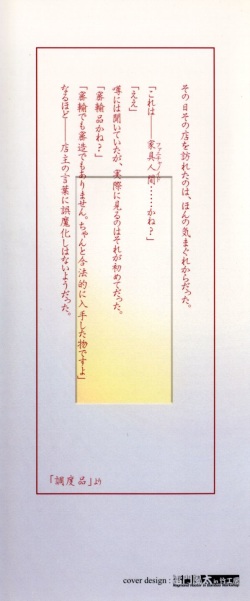 その日その店を訪れたのは、ほんの気まぐれからだった。
「これは――家具人間……かね？」
「ええ」
噂には聞いていたが、実際に見るのはそれが初めてだった。
「密輸品かね？」
「密輸でも密造でもありません。ちゃんと合法的に入手した物ですよ」
なるほど――店主の言葉に誤魔化しはないようだった。
「調度品」より
cover design :